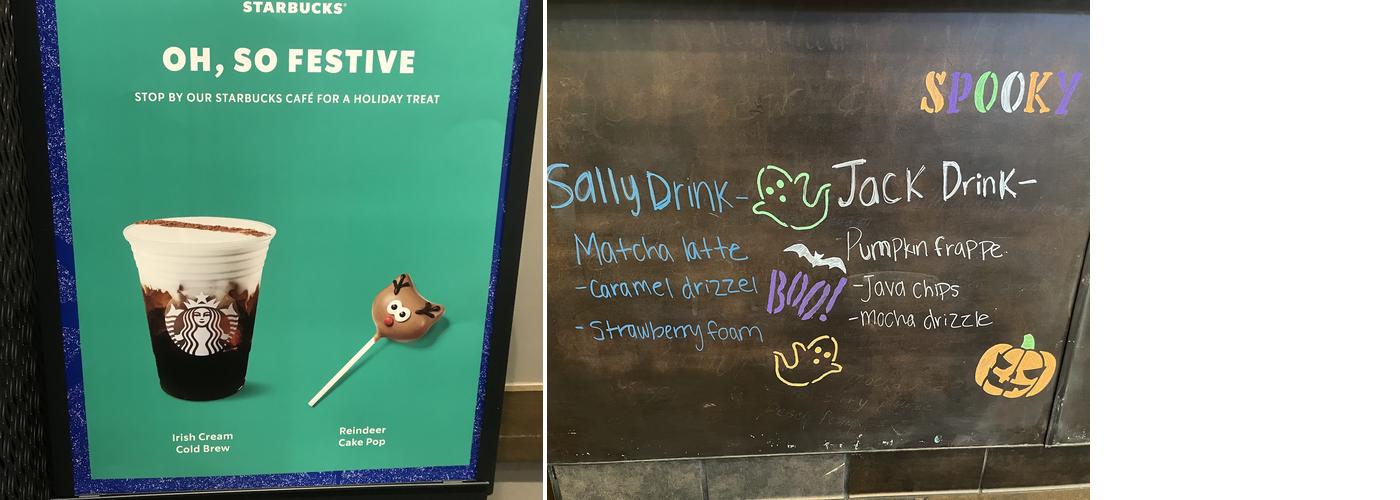 STARBUCKS®
OH, SO FESTIVE
STOP BY OUR STARBUCKS CAFÉ FOR A HOLIDAY TREAT
Irish Cream
Cold Brew
Reindeer
Cake Pop
SPOOKY
Sally Drink-
Matcha latte
-caramel drizzel
-Strawberry foam
BOO!
Jack Drink-
Pumpkin frappe
-Java chips
-mocha drizzle